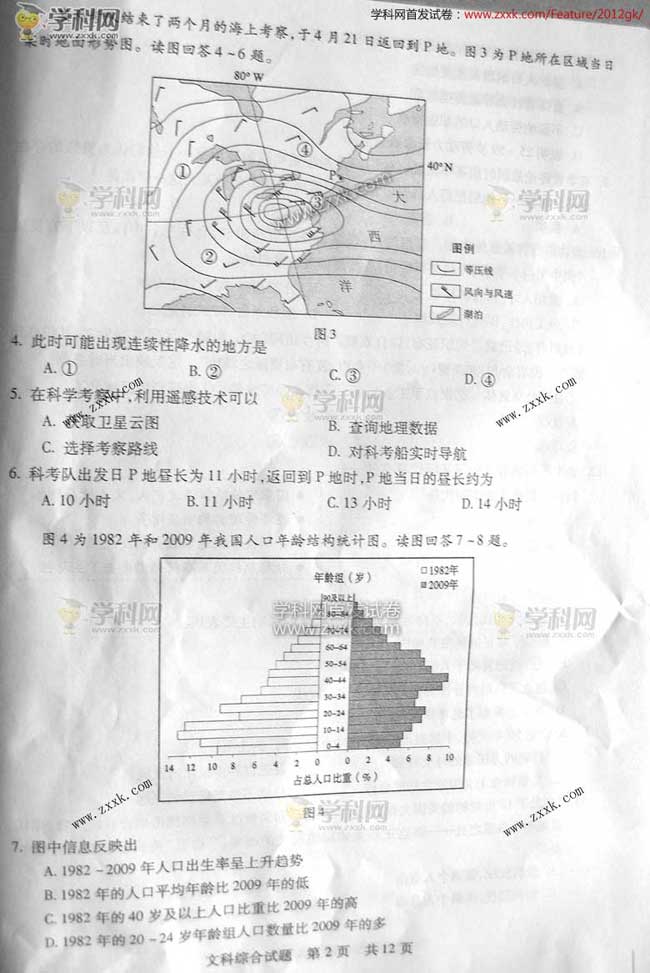 学科网首发试卷:www.zxxk.com/Feature/2012gk/
学科网
www.zxxk.com
结束了两个月的海上考察,于4月21日返回到P地。图3为P地所在区域当日
时地面形势图。读图回答4~6题。
80°W
40°N
①
②
③
④
P
大
西
洋
图例
等压线
风向与风速
湖泊
图3
学科网
www.zxxk.com
学科网
www.zxxk.com
4. 此时可能出现连续性降水的地方是
A. ①
B. ②
C. ③
D. ④
5. 在科学考察中,利用遥感技术可以
A. 获取卫星云图
B. 查询地理数据
C. 选择考察路线
D. 对科考船实时导航
www.zxxk.com
学科网
www.zxxk.com
www.zxxk.com
6. 科考队出发日P地昼长为11小时,返回到P地时,P地当日的昼长约为
A. 10小时
B. 11小时
C. 13小时
D. 14小时
图4为1982年和2009年我国人口年龄结构统计图。读图回答7~8题。
年龄组(岁)
1982年
2009年
90及以上
80-84
70-74
60-64
50-54
40-44
30-34
20-24
10-14
0-4
14 12 10 8 6 4 2 0 0 2 4 6 8 10
占总人口比重(%)
图4
学科网首发试卷
www.zxxk.com
学科网
www.zxxk.com
学科网
www.zxxk.com
学科网
www.zxxk.com
www.zxxk.com
www.zxxk.com
7. 图中信息反映出
A. 1982-2009年人口出生率呈上升趋势
B. 1982年的人口平均年龄比2009年的低
C. 1982年的40岁及以上人口比重比2009年的高
D. 1982年的20-24岁年龄组人口数量比2009年的多
文科综合试题 第2页 共12页